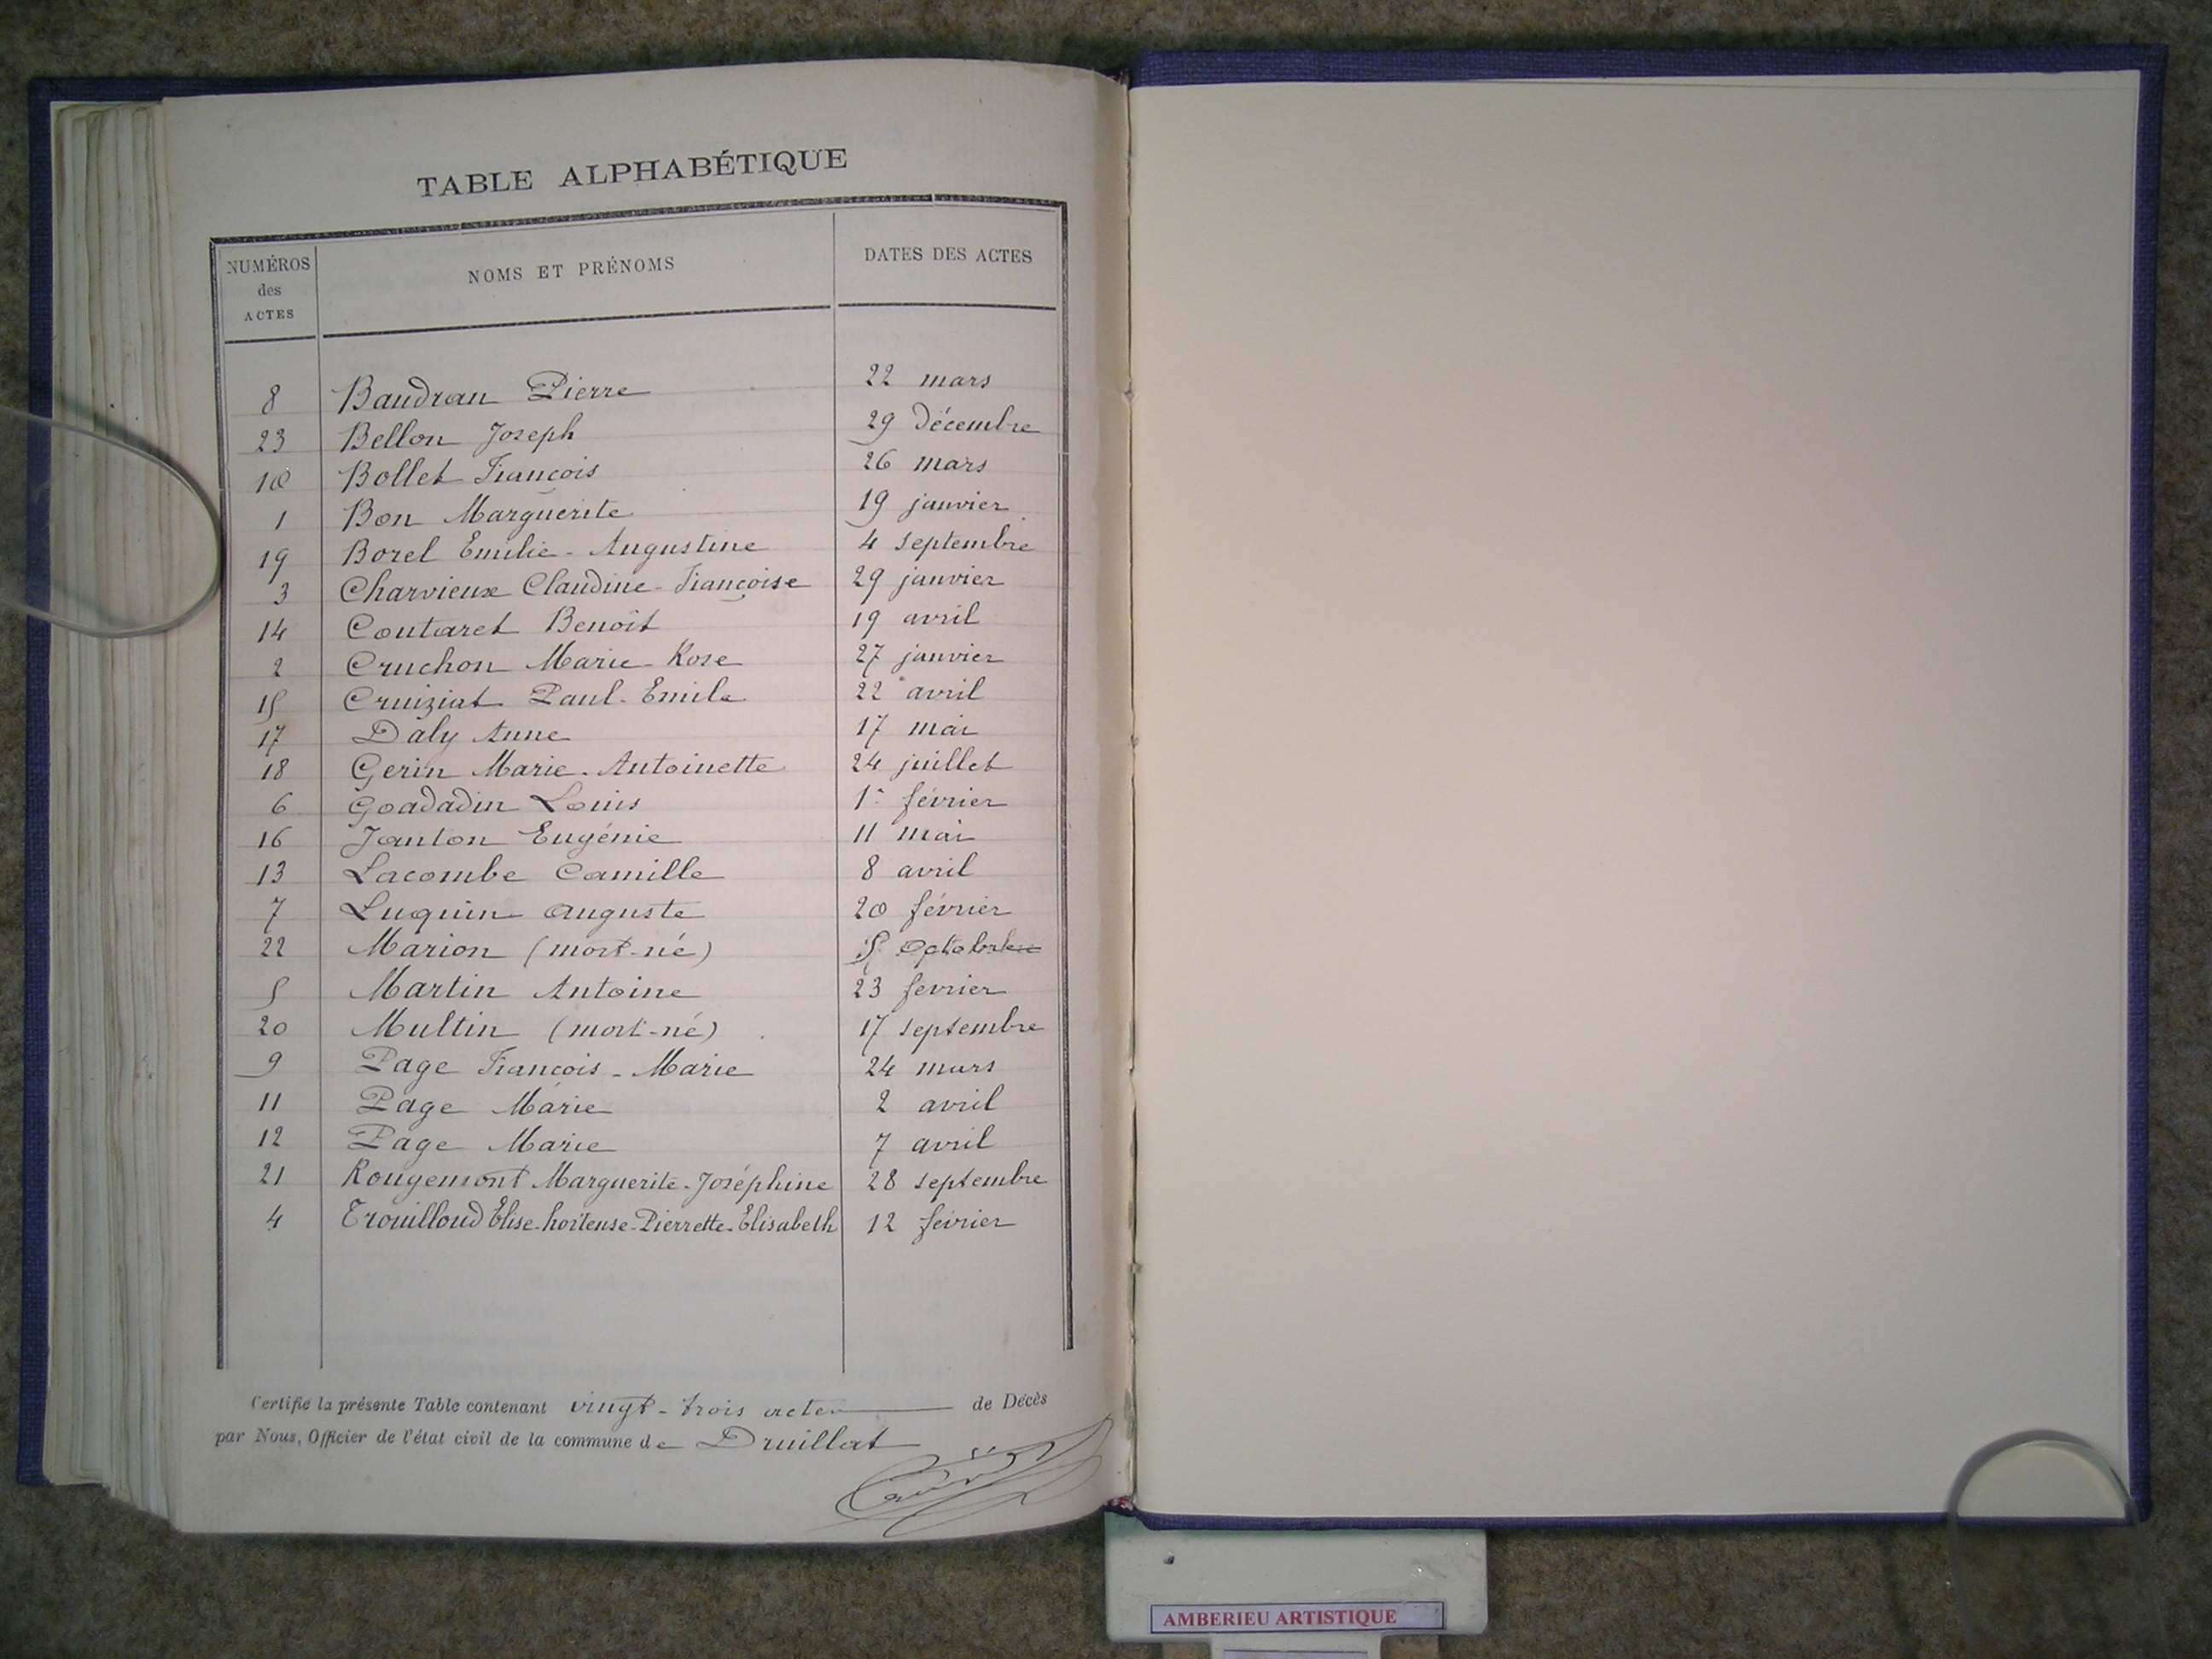 TABLE ALPHABÉTIQUE
NUMÉROS des ACTES NOMS ET PRÉNOMS DATES DES ACTES
8 Baudran Pierre 22 mars
23 Bellon Joseph 29 Décembre
10 Bollet François 26 mars
1 Bon Marguerite 19 janvier
19 Borel Emilie-Augustine 4 septembre
3 Charvieux Claudine-Françoise 29 janvier
14 Coutaret Benoit 19 avril
2 Cruchon Marie-Rose 27 janvier
15 Cruiziat Paul-Emile 22 avril
17 Daly Anne 17 mai
18 Gerin Marie-Antoinette 24 juillet
6 Goadadin Louis 1er février
16 Janton Eugénie 11 mai
13 Lacombe Camille 8 avril
7 Luquin Auguste 20 février
22 Marion (mort-né) 5 Octobre
5 Martin Antoine 23 fevrier
20 Multin (mort-né) 17 septembre
9 Page François-Marie 24 mars
11 Page Marie 2 avril
12 Page Marie 7 avril
21 Rougemont Marguerite-Joséphine 28 septembre
4 Trouilloud Élise-hortense-Pierrette-Élisabeth 12 février
Certifie la présente Table contenant vingt-trois actes de Décès
par Nous, Officier de l'état civil de la commune de Druillat
AMBERIEU ARTISTIQUE